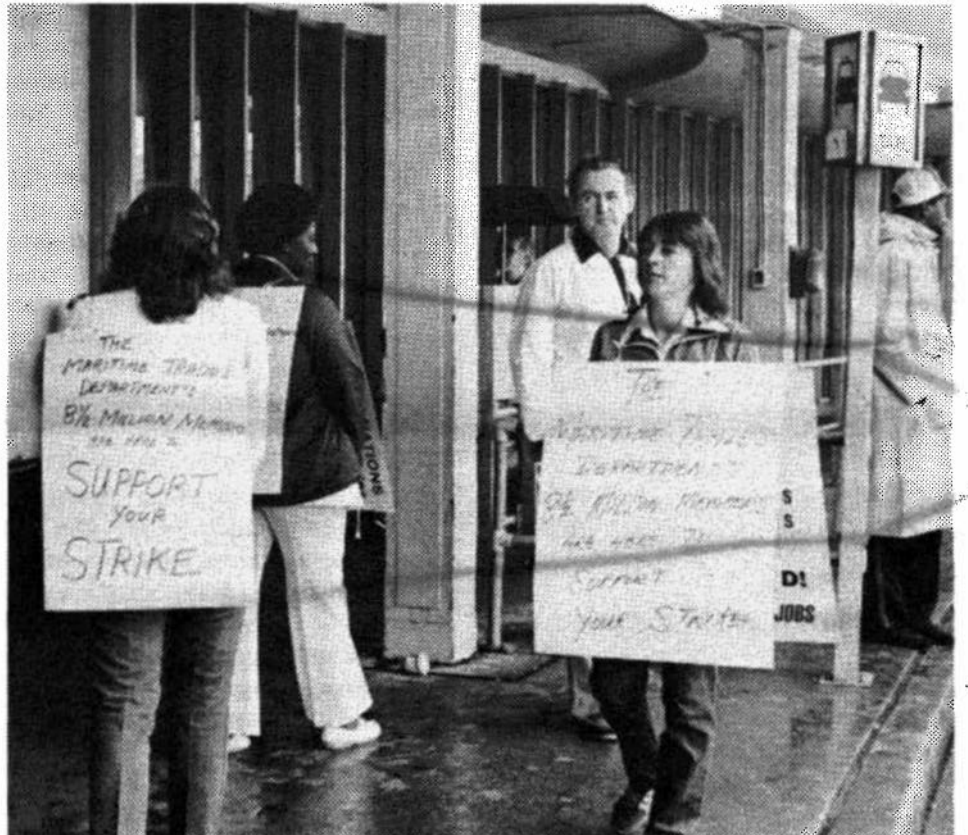 THE
MARITIME TRADES
DEPARTMENT'S
8½ MILLION
ARE HERE
SUPPORT
YOUR
STRIKE
ATIONS
THE
MARITIME TRADES
DEPARTMENT'S
8½ MILLION MEMBERS
ARE HERE TO
SUPPORT
YOUR STRIKE
S
S
D!
JOBS